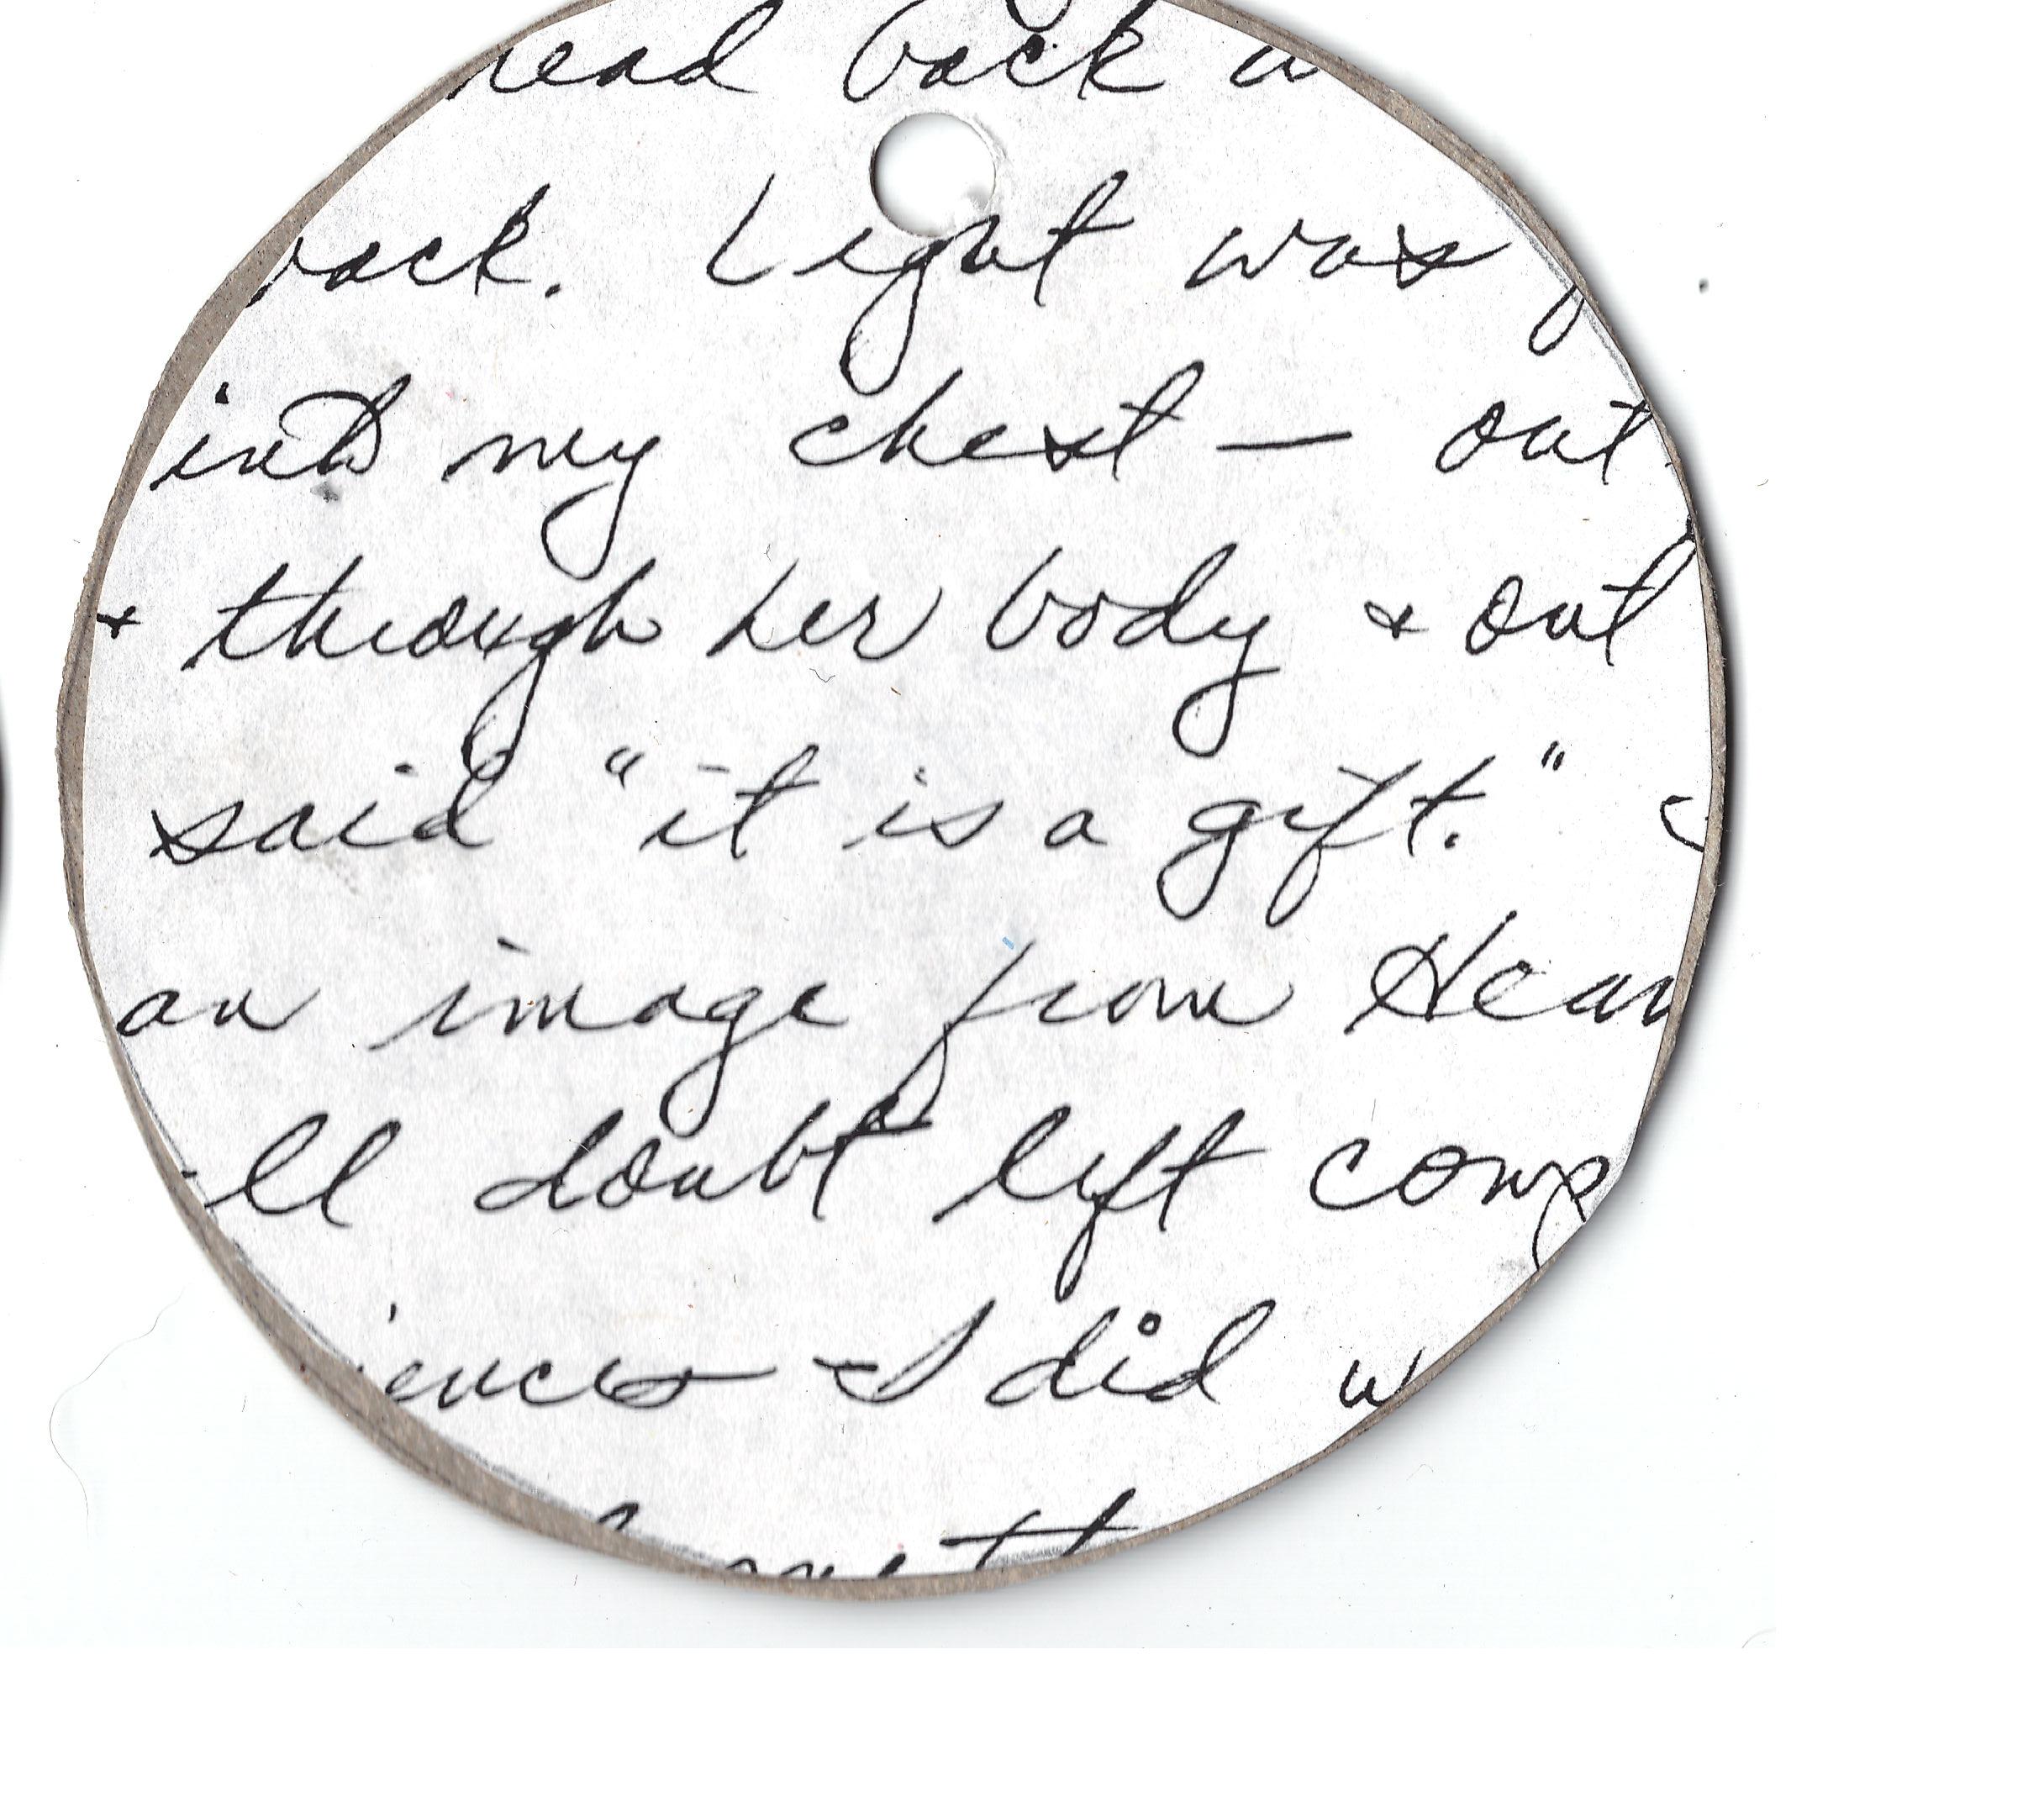 head back a
back. Light was
into my chest — out
+ through her body + out
said "it is a gift."
an image from Heav
ll doubt left comp
iences I did w